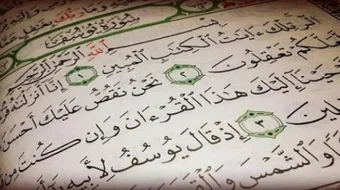 سُورَةُ يُوسُفَ
بِسْمِ اللَّهِ الرَّحْمَٰنِ الرَّحِيمِ
الٓر تِلْكَ ءَايَٰتُ الْكِتَٰبِ الْمُبِينِ ١ إِنَّآ أَنزَلْنَٰهُ قُر
لَّكُمْ تَعْقِلُونَ ٢ نَحْنُ نَقُصُّ عَلَيْكَ أَحْسَنَ
حَيْنَآ إِلَيْكَ هَٰذَا الْقُرْءَانَ وَإِن كُنتَ مِن
لِينَ ٣ إِذْ قَالَ يُوسُفُ لِأَبِيهِ يَ
ا وَالشَّمْسَ وَالْقَمَ